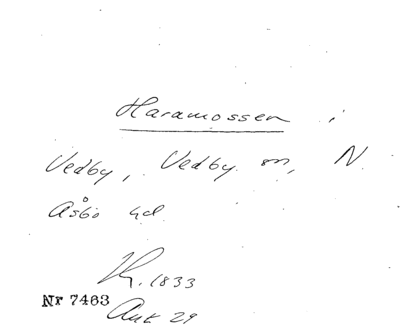 Haramossen i
Vedby, Vedby sn, N
Åsbo hd
K. 1833
Nr 7463
Auk 29